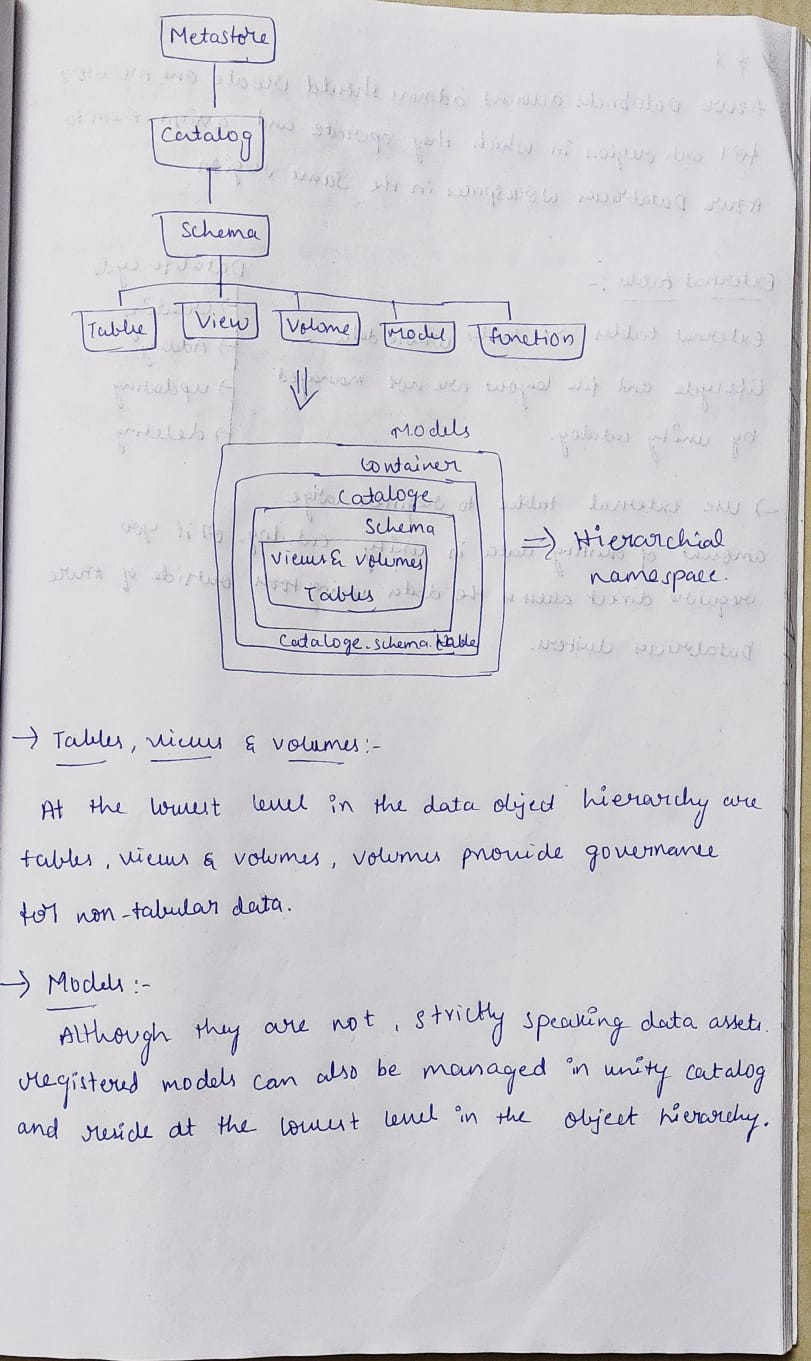 Metastore
Catalog
Schema
Table View Volume Model function
Models
Container
Cataloge
Schema
Views & Volumes
Tables
Cataloge.schema.table
=> Hierarchial
namespace.
→ Tables, views & volumes :-
At the lowest level in the data object hierarchy are
tables, views & volumes, volumes provide governance
for non-tabular data.
→ Models :-
Although they are not, strictly speaking data assets.
registered models can also be managed in unity catalog
and reside at the lowest level in the object hierarchy.